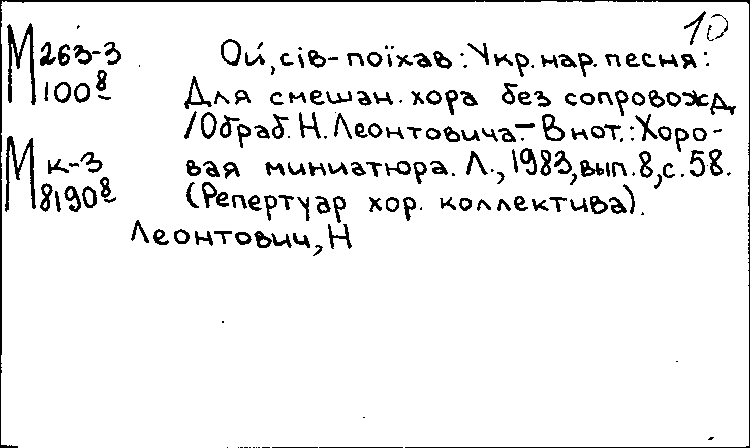 10
М 263-3 Ой, сів-поїхав: Укр. нар. песня:
100⁸ Для смешан. хора без сопровожд.
/Обраб. Н. Леонтовича.- В нот.: Хоро-
М к-3 вая миниатюра. Л., 1983, вып. 8, с. 58.
8190⁸ (Репертуар хор. коллектива).
Леонтович, Н